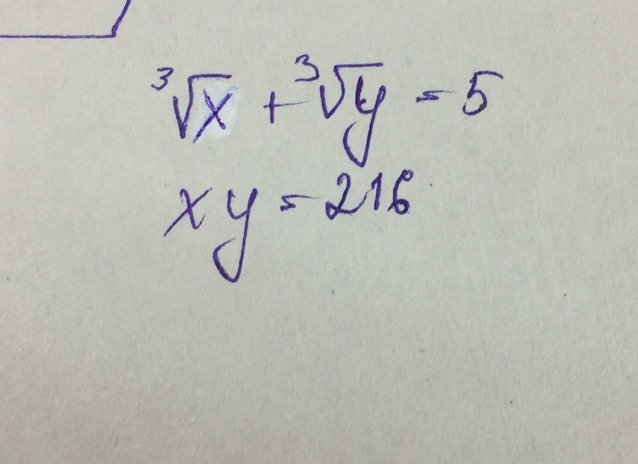 ∛x + ∛y = 5
xy = 216